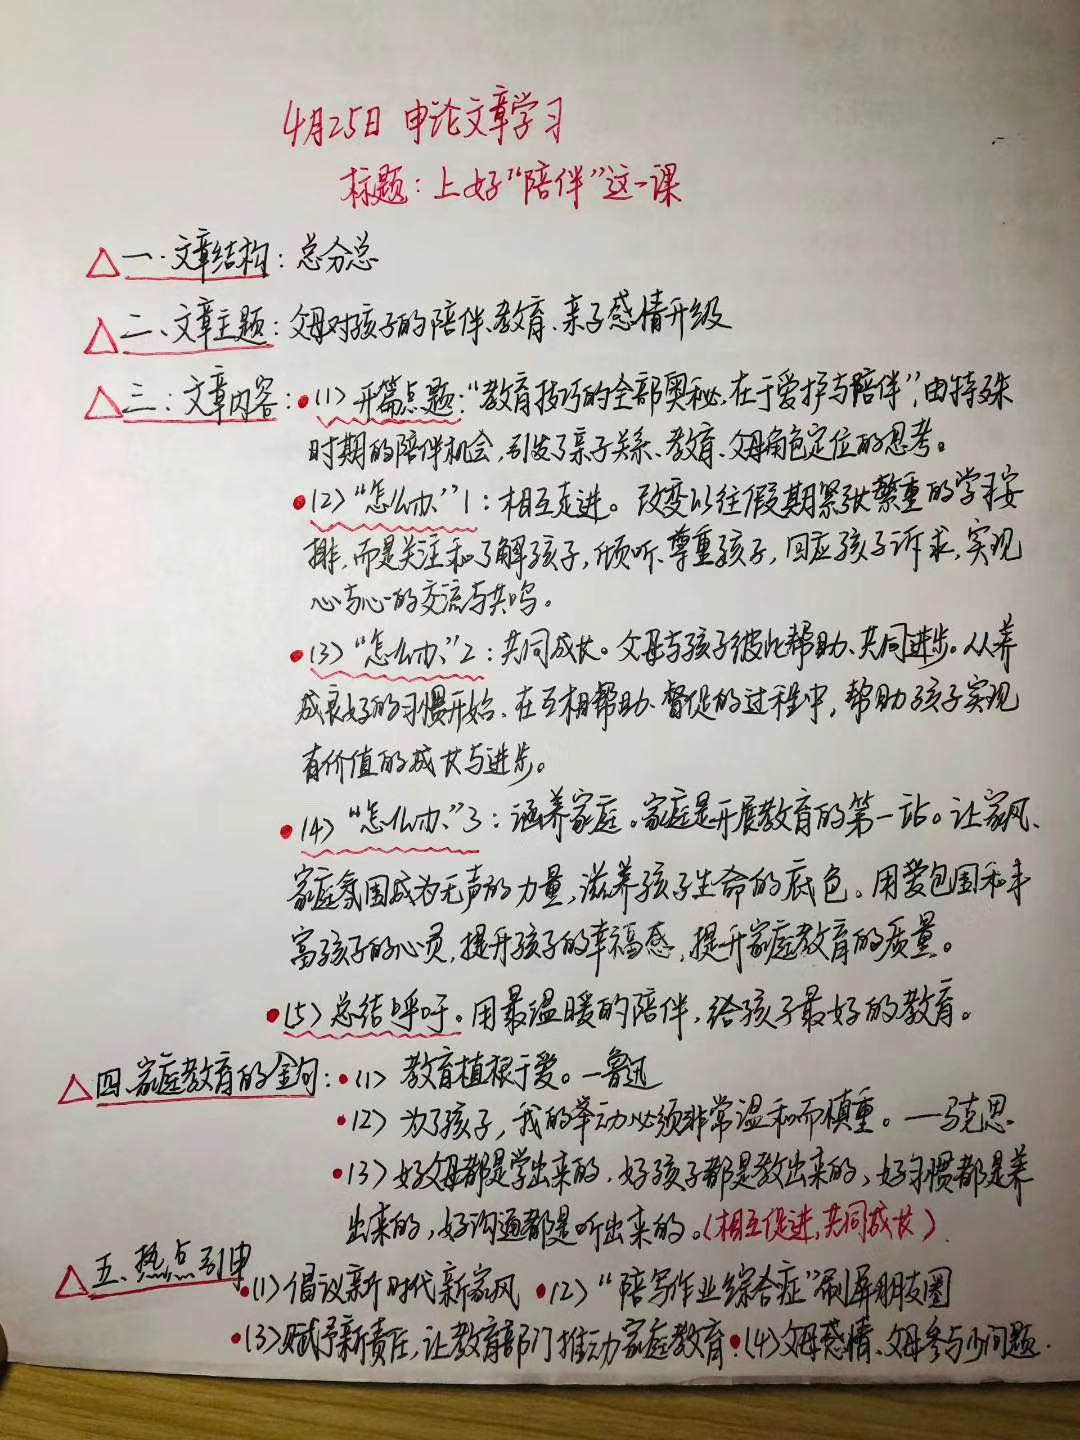 4月25日 申论文章学习
标题：上好"陪伴"这一课
△一.文章结构：总分总
△二、文章主题：父母对孩子的陪伴、教育、亲子感情升级
△三：文章内容：•(1)开篇点题："教育技巧的全部奥秘,在于爱护与陪伴",由特殊
时期的陪伴机会,引发了亲子关系、教育、父母角色定位的思考。
•(2)"怎么办"1：相互走进。改变以往假期紧张繁重的学习安
排,而是关注和了解孩子,倾听、尊重孩子,回应孩子诉求,实现
心与心的交流与共鸣。
•(3)"怎么办"2：共同成长。父母与孩子彼此帮助、共同进步。从养
成良好的习惯开始、在互相帮助、督促的过程中,帮助孩子实现
有价值的成长与进步。
•(4)"怎么办"3：涵养家庭。家庭是开展教育的第一站。让家风、
家庭氛围成为无声的力量,滋养孩子生命的底色。用爱包围和丰
富孩子的心灵,提升孩子的幸福感,提升家庭教育的质量。
•(5)总结呼吁。用最温暖的陪伴,给孩子最好的教育。
△四.家庭教育的金句：•(1)教育植根于爱。—鲁迅
•(2)为了孩子,我的举动必须非常温和而慎重。—马克思
•(3)好父母都是学出来的,好孩子都是教出来的,好习惯都是养
出来的,好沟通都是听出来的。(相互促进,共同成长)
△五、热点引申
•(1)倡议新时代新家风 •(2)"陪写作业综合症"刷屏朋友圈
•(3)赋予新责任,让教育部门推动家庭教育•(4)父母感情、父母参与少问题.